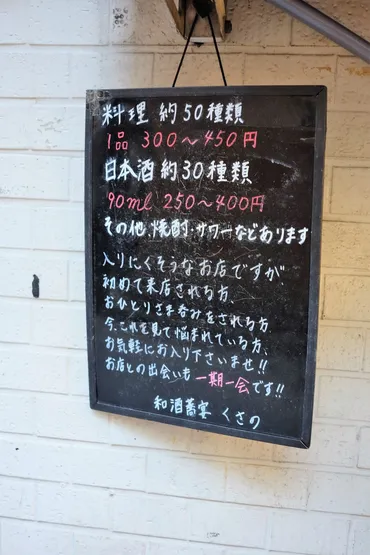 料理 約50種類
1品 300〜450円
日本酒約30種類
90ml 250〜400円
その他、焼酎、サワーなどあります
入りにくそうなお店ですが、
初めて来店される方、
おひとりさま呑みをされる方、
今、これを見て悩まれている方、
お気軽にお入り下さいませ!!
お店との出会いも一期一会です!!
和酒蕎宴 くさの